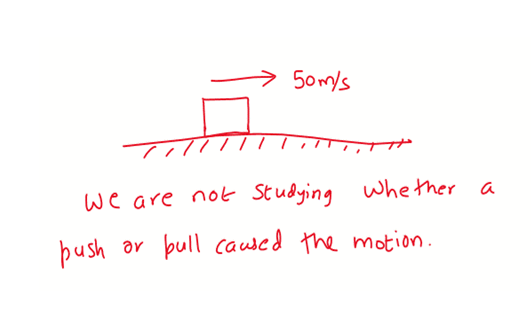 50m/s
We are not studying whether a
push or pull caused the motion.